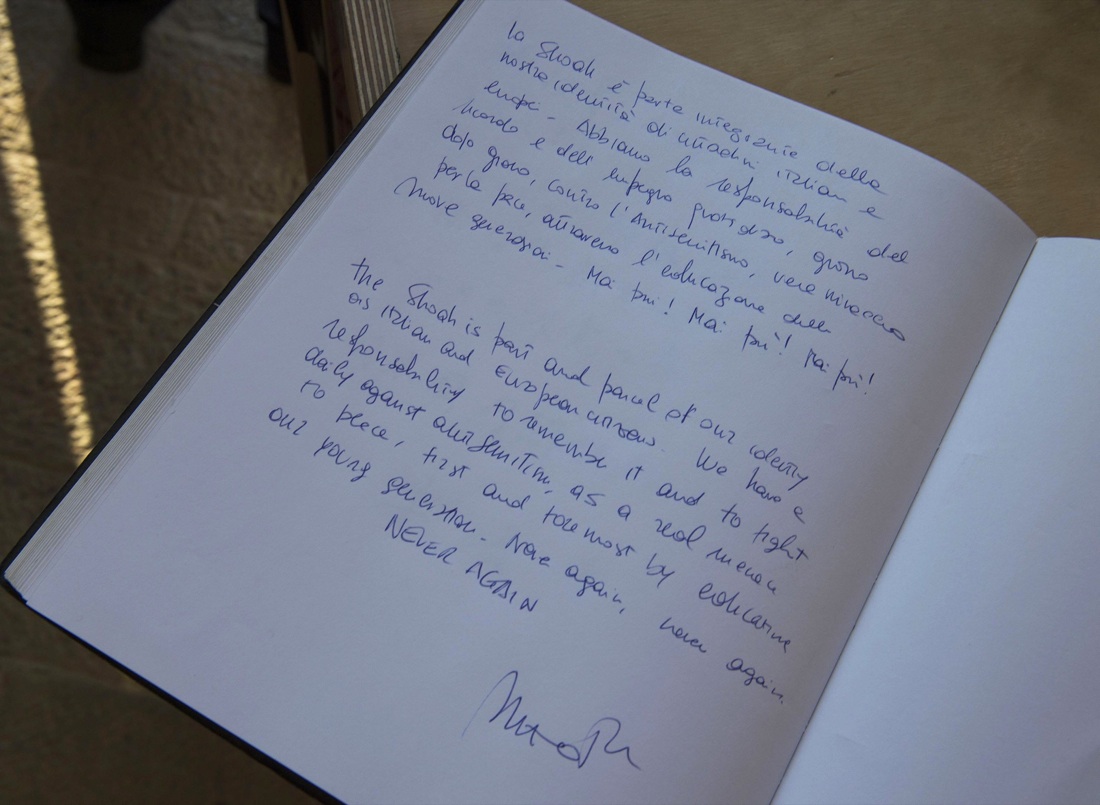 la Shoah è parte integrante della
nostra identità di cittadini italiani e
europei - Abbiamo la responsabilità del
ricordo e dell'impegno quotidiano, giorno
dopo giorno, contro l'Antisemitismo, vera minaccia
per la pace, attraverso l'educazione delle
nuove generazioni - Mai più! Mai più! Mai più!
the Shoah is part and parcel of our identity
as italian and European citizens. We have a
responsability to remember it and to fight
daily against antisemitism, as a real menace
to peace, first and foremost by educating
our young generation. Never again, never again.
NEVER AGAIN